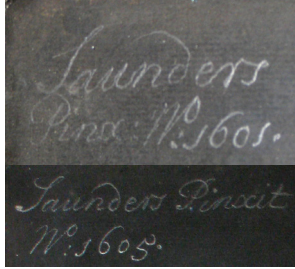 Saunders
Pinx: Nº: 1601.
Saunders Pinxit
Nº. 1605.